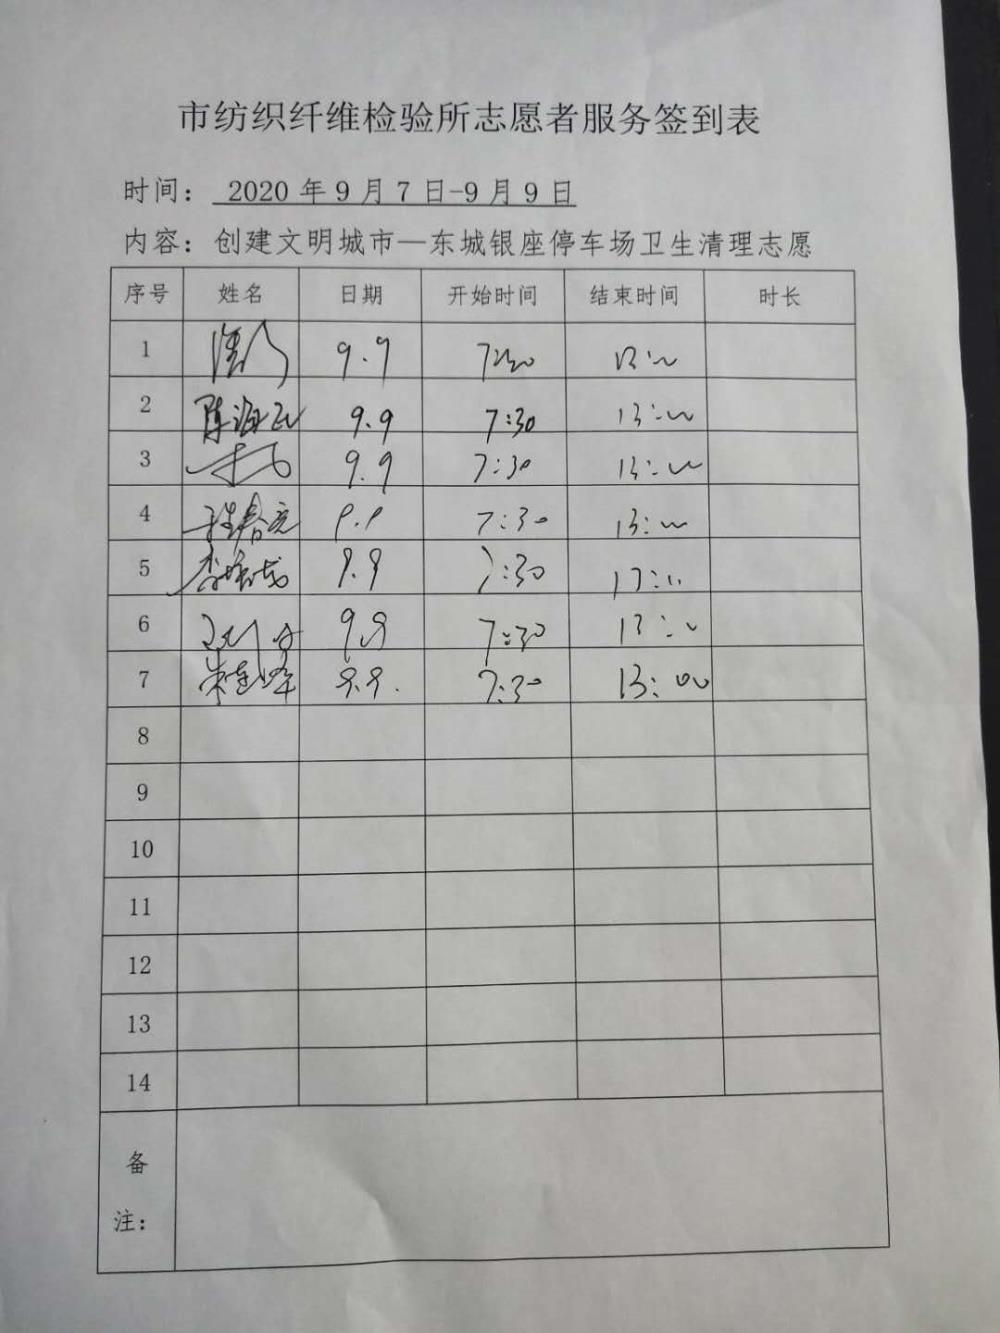 市纺织纤维检验所志愿者服务签到表
时间： 2020 年 9 月 7 日-9 月 9 日
内容：创建文明城市—东城银座停车场卫生清理志愿
序号 姓名 日期 开始时间 结束时间 时长
1 9.9 7:30 13:00
2 陈海民 9.9 7:30 13:00
3 9.9 7:30 13:00
4 9.9 7:30 13:00
5 9.9 7:30 13:00
6 9.9 7:30 13:00
7 9.9. 7:30 13:00
8
9
10
11
12
13
14
备
注：